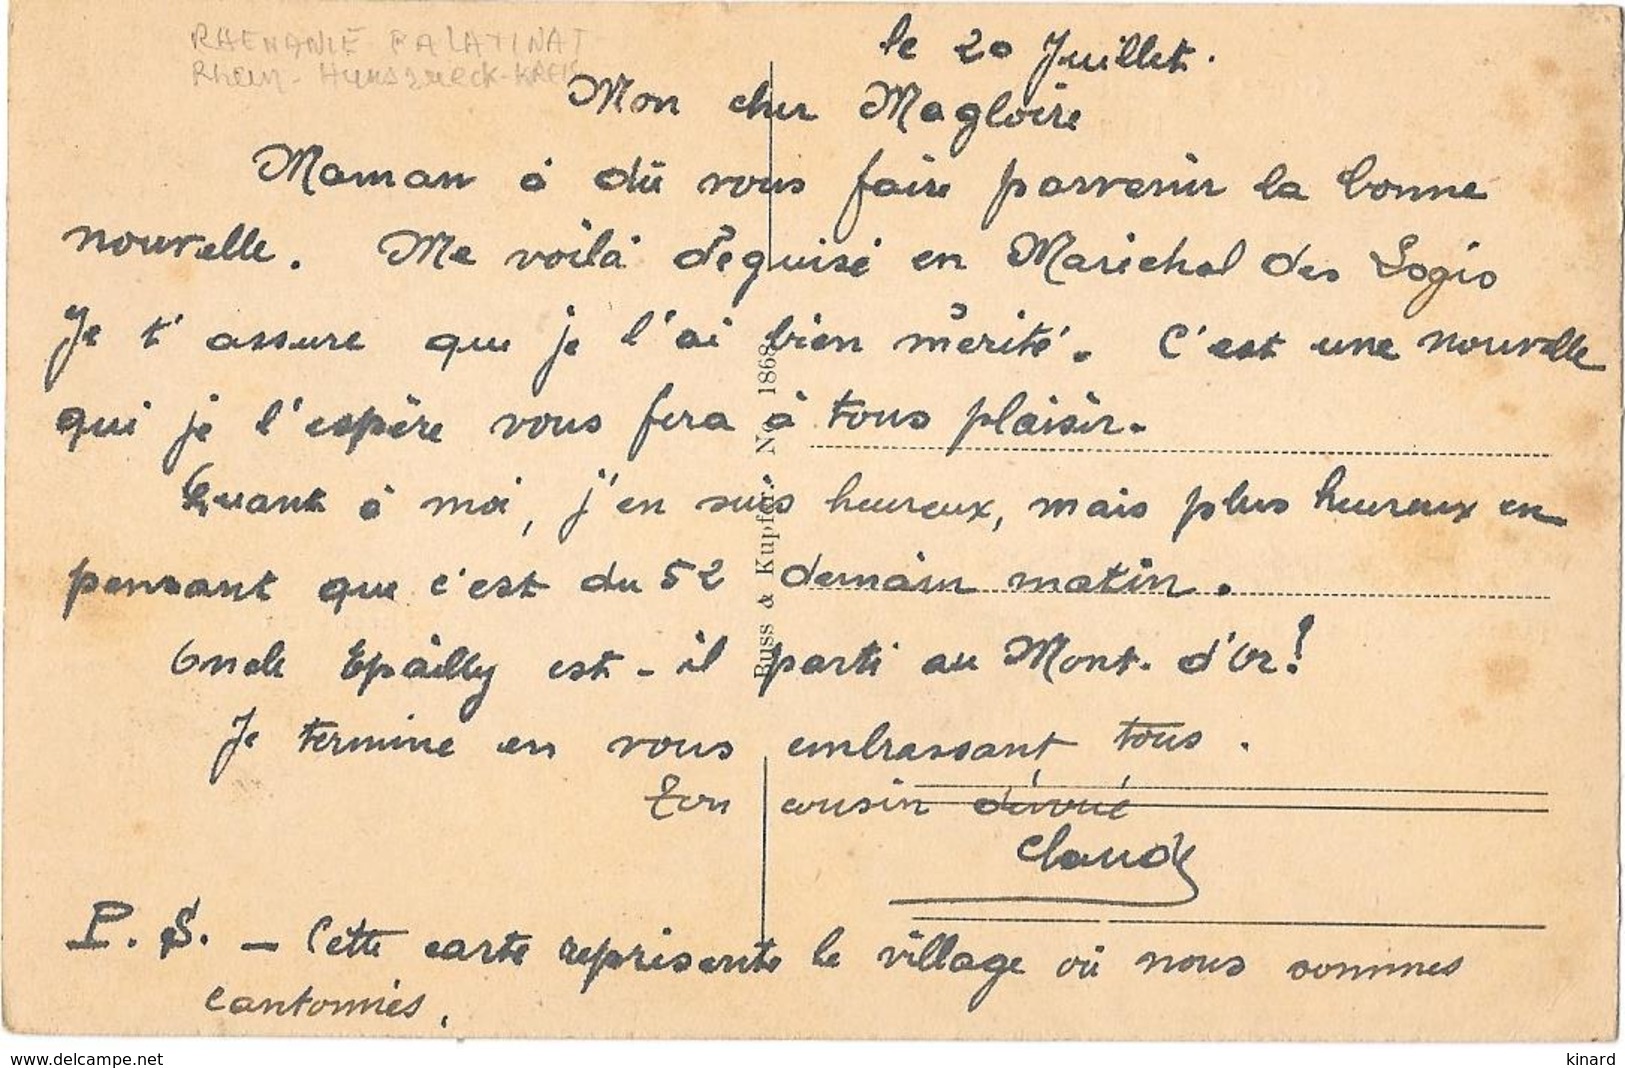 RHENANIE PALATINAT
Rhein-Hunsrueck-KREIS
le 20 Juillet.
Mon cher Magloire
Maman à dû vous faire parvenir la bonne
nouvelle. Me voilà déguisé en Maréchal des Logis
Je t'assure que je l'ai bien mérité. C'est une nouvelle
qui je l'espère vous fera à tous plaisir.
Quant à moi, j'en suis heureux, mais plus heureux en
pensant que c'est du 52 demain matin.
Oncle Epailly est-il parti au Mont-d'Or!
Je termine en vous embrassant tous.
Ton cousin dévoué
Claude
P.S. — Cette carte représente le village où nous sommes
cantonnés.
Buss & Kupfer. No. 1868
www.delcampe.net
kinard